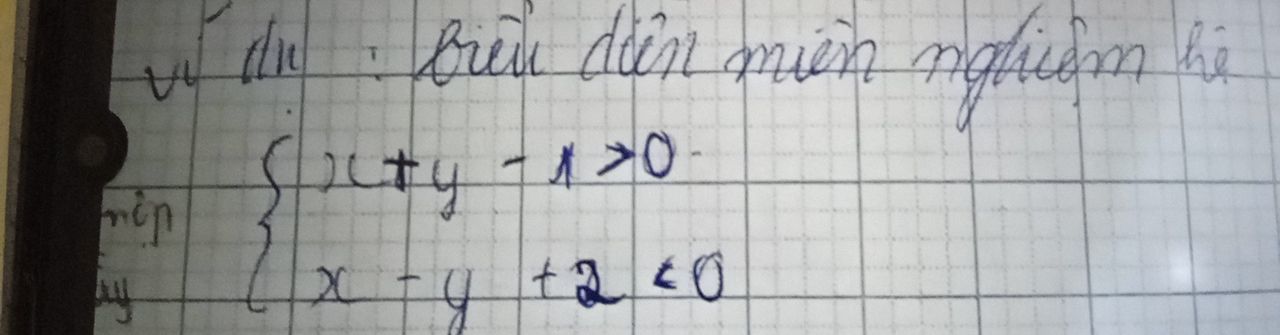 ví dụ : Biểu diễn miền nghiệm hệ
x + y - 1 > 0
x - y + 2 < 0